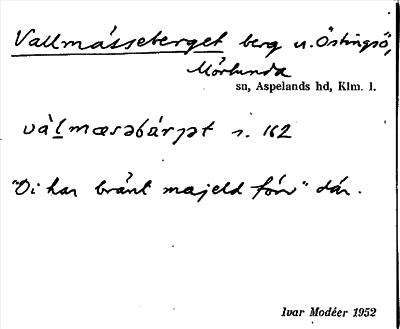 Vallmåsseberget berg u. Östingsö,
Mörlunda
sn, Aspelands hd, Klm. l.
vàḻmæsəbárjət s. 162
"Di har bränt majeld förr" där.
Ivar Modéer 1952